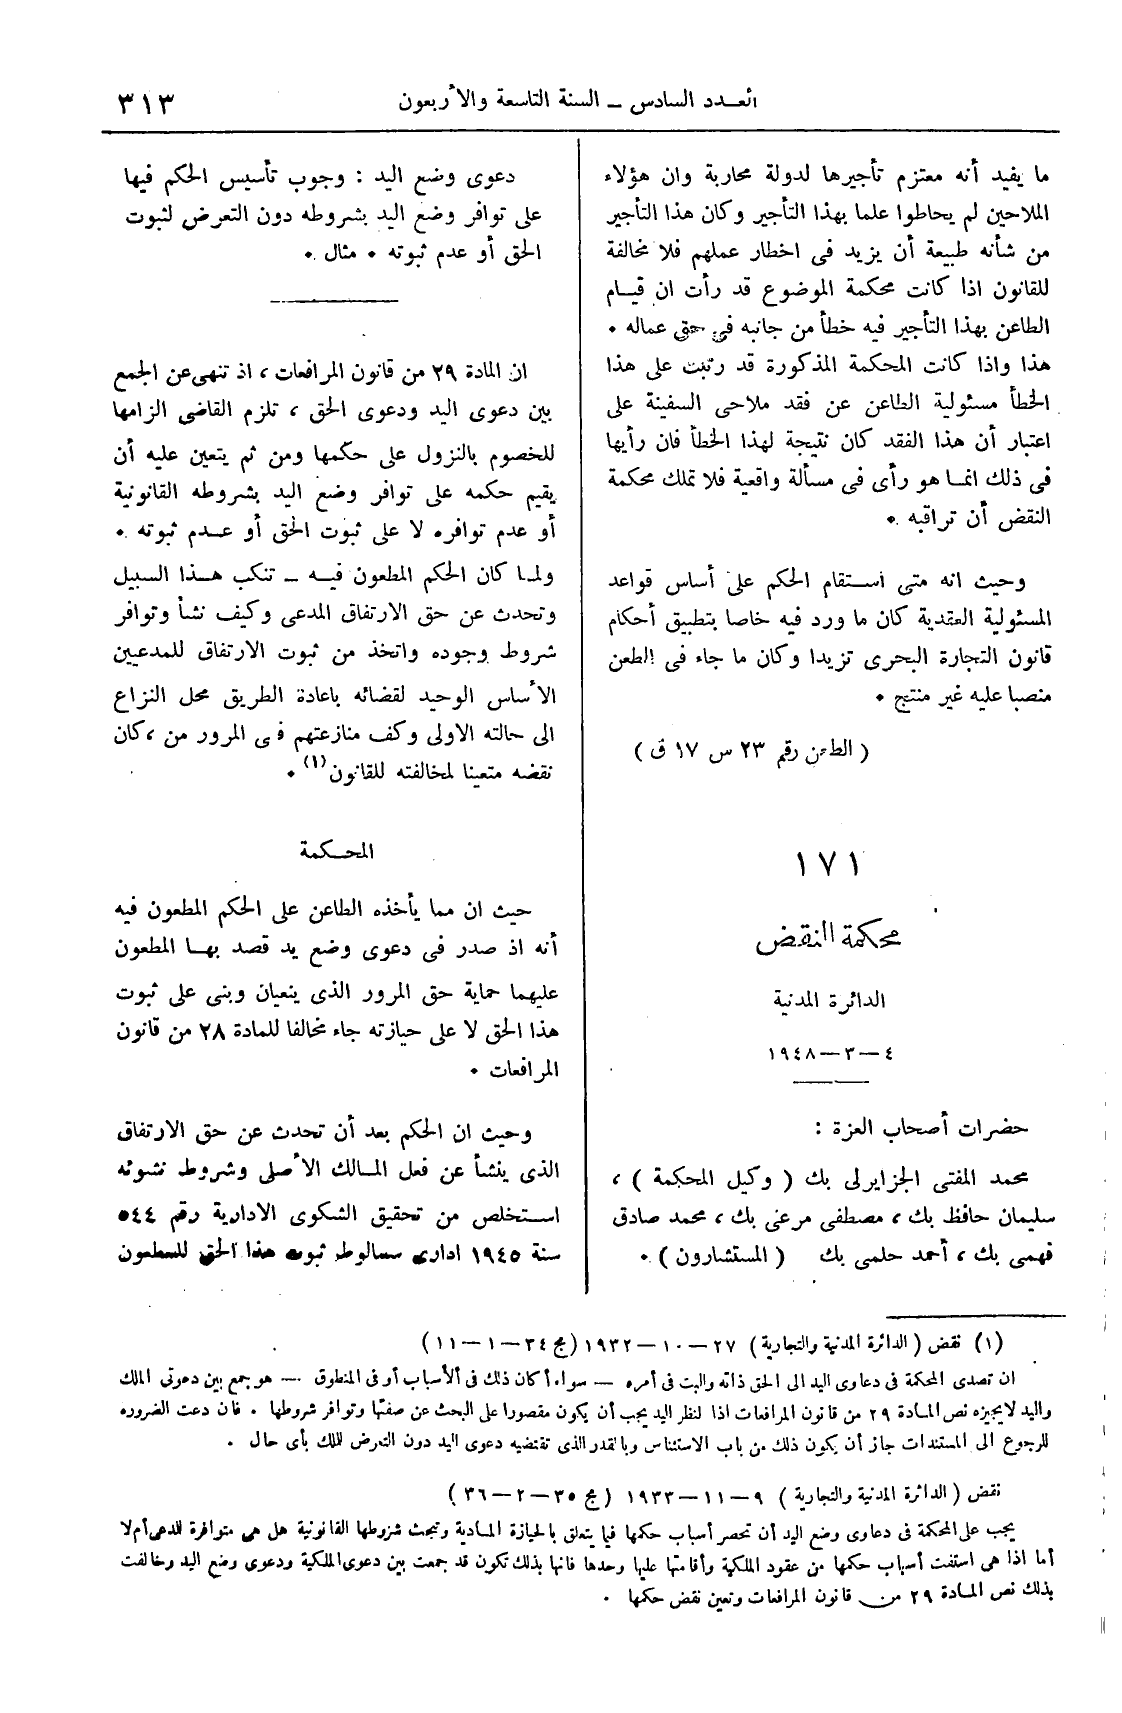 العدد السادس – السنة التاسعة والأربعون
٣١٣
ما يفيد أنه معتزم تأجيرها لدولة محاربة وان هؤلاء
الملاحين لم يحاطوا علما بهذا التأجير وكان هذا التأجير
من شأنه طبيعة أن يزيد فى اخطار عملهم فلا مخالفة
للقانون اذا كانت محكمة الموضوع قد رأت ان قيام
الطاعن بهذا التأجير فيه خطأ من جانبه فى حق عماله .
هذا واذا كانت المحكمة المذكورة قد رتبت على هذا
الخطأ مسئولية الطاعن عن فقد ملاحى السفينة على
اعتبار أن هذا الفقد كان نتيجة لهذا الخطأ فان رأيها
فى ذلك انما هو رأى فى مسألة واقعية فلا تملك محكمة
النقض أن تراقبه .
وحيث انه متى استقام الحكم على أساس قواعد
المسئولية العقدية كان ما ورد فيه خاصا بتطبيق أحكام
قانون التجارة البحرى تزيدا وكان ما جاء فى الطعن
منصبا عليه غير منتج .
( الطعن رقم ٢٣ س ١٧ ق )
١٧١
محكمة النقض
الدائرة المدنية
٤ – ٣ – ١٩٤٨
حضرات أصحاب العزة :
محمد المفتى الجزايرلى بك ( وكيل المحكمة ) ،
سليمان حافظ بك ، مصطفى مرعى بك ، محمد صادق
فهمى بك ، أحمد حلمى بك ( المستشارون ) .
دعوى وضع اليد : وجوب تأسيس الحكم فيها
على توافر وضع اليد بشروطه دون التعرض لثبوت
الحق أو عدم ثبوته . مثال .
ان المادة ٢٩ من قانون المرافعات ، اذ تنهى عن الجمع
بين دعوى اليد ودعوى الحق ، تلزم القاضى الزامها
للخصوم بالنزول على حكمها ومن ثم يتعين عليه أن
يقيم حكمه على توافر وضع اليد بشروطه القانونية
أو عدم توافره لا على ثبوت الحق أو عدم ثبوته .
ولما كان الحكم المطعون فيه – تنكب هذا السبيل
وتحدث عن حق الارتفاق المدعى وكيف نشأ وتوافر
شروط وجوده واتخذ من ثبوت الارتفاق للمدعيين
الأساس الوحيد لقضائه باعادة الطريق محل النزاع
الى حالته الاولى وكف منازعتهم فى المرور من ، كان
نقضه متعينا لمخالفته للقانون (١) .
المحكمة
حيث ان مما يأخذه الطاعن على الحكم المطعون فيه
أنه اذ صدر فى دعوى وضع يد قصد بها المطعون
عليهما حماية حق المرور الذى يدعيان وبنى على ثبوت
هذا الحق لا على حيازته جاء مخالفا للمادة ٢٨ من قانون
المرافعات .
وحيث ان الحكم بعد أن تحدث عن حق الارتفاق
الذى ينشأ عن فعل المالك الأصلى وشروط نشوئه
استخلص من تحقيق الشكوى الادارية رقم ٥٤٤
سنة ١٩٤٥ ادارى سمالوط ثبوت هذا الحق للمطعون
(١) نقض ( الدائرة المدنية والتجارية ) ٢٧ – ١٠ – ١٩٣٢ ( مج ٣٤ – ١ – ١١ )
ان تصدى المحكمة فى دعاوى اليد الى الحق ذاته والبت فى أمره — سواء أكان ذلك فى الأسباب أو فى المنطوق — هو جمع بين دعوتى الملك
واليد لا يجيزه نص المادة ٢٩ من قانون المرافعات اذا لنظر اليد يجب أن يكون مقصورا على البحث عن صفتها وتوافر شروطها . فان دعت الضروره
للرجوع الى المستندات جاز أن يكون ذلك من باب الاستئناس وبالقدر الذى تقتضيه دعوى اليد دون التعرض للملك بأى حال .
نقض ( الدائرة المدنية والتجارية ) ٩ – ١١ – ١٩٣٣ ( مج ٣٥ – ٢ – ٣٦ )
يجب على المحكمة فى دعاوى وضع اليد أن تحصر أسباب حكمها فيما يتعلق بالحيازة المادية وتبحث شروطها القانونية هل هى متوافرة للمدعى أم لا
أما اذا هى استقت أسباب حكمها من عقود الملكية وأقامتها عليها وحدها فانها بذلك تكون قد جمعت بين دعوى الملكية ودعوى وضع اليد وخالفت
بذلك نص المادة ٢٩ من قانون المرافعات وتعين نقض حكمها .